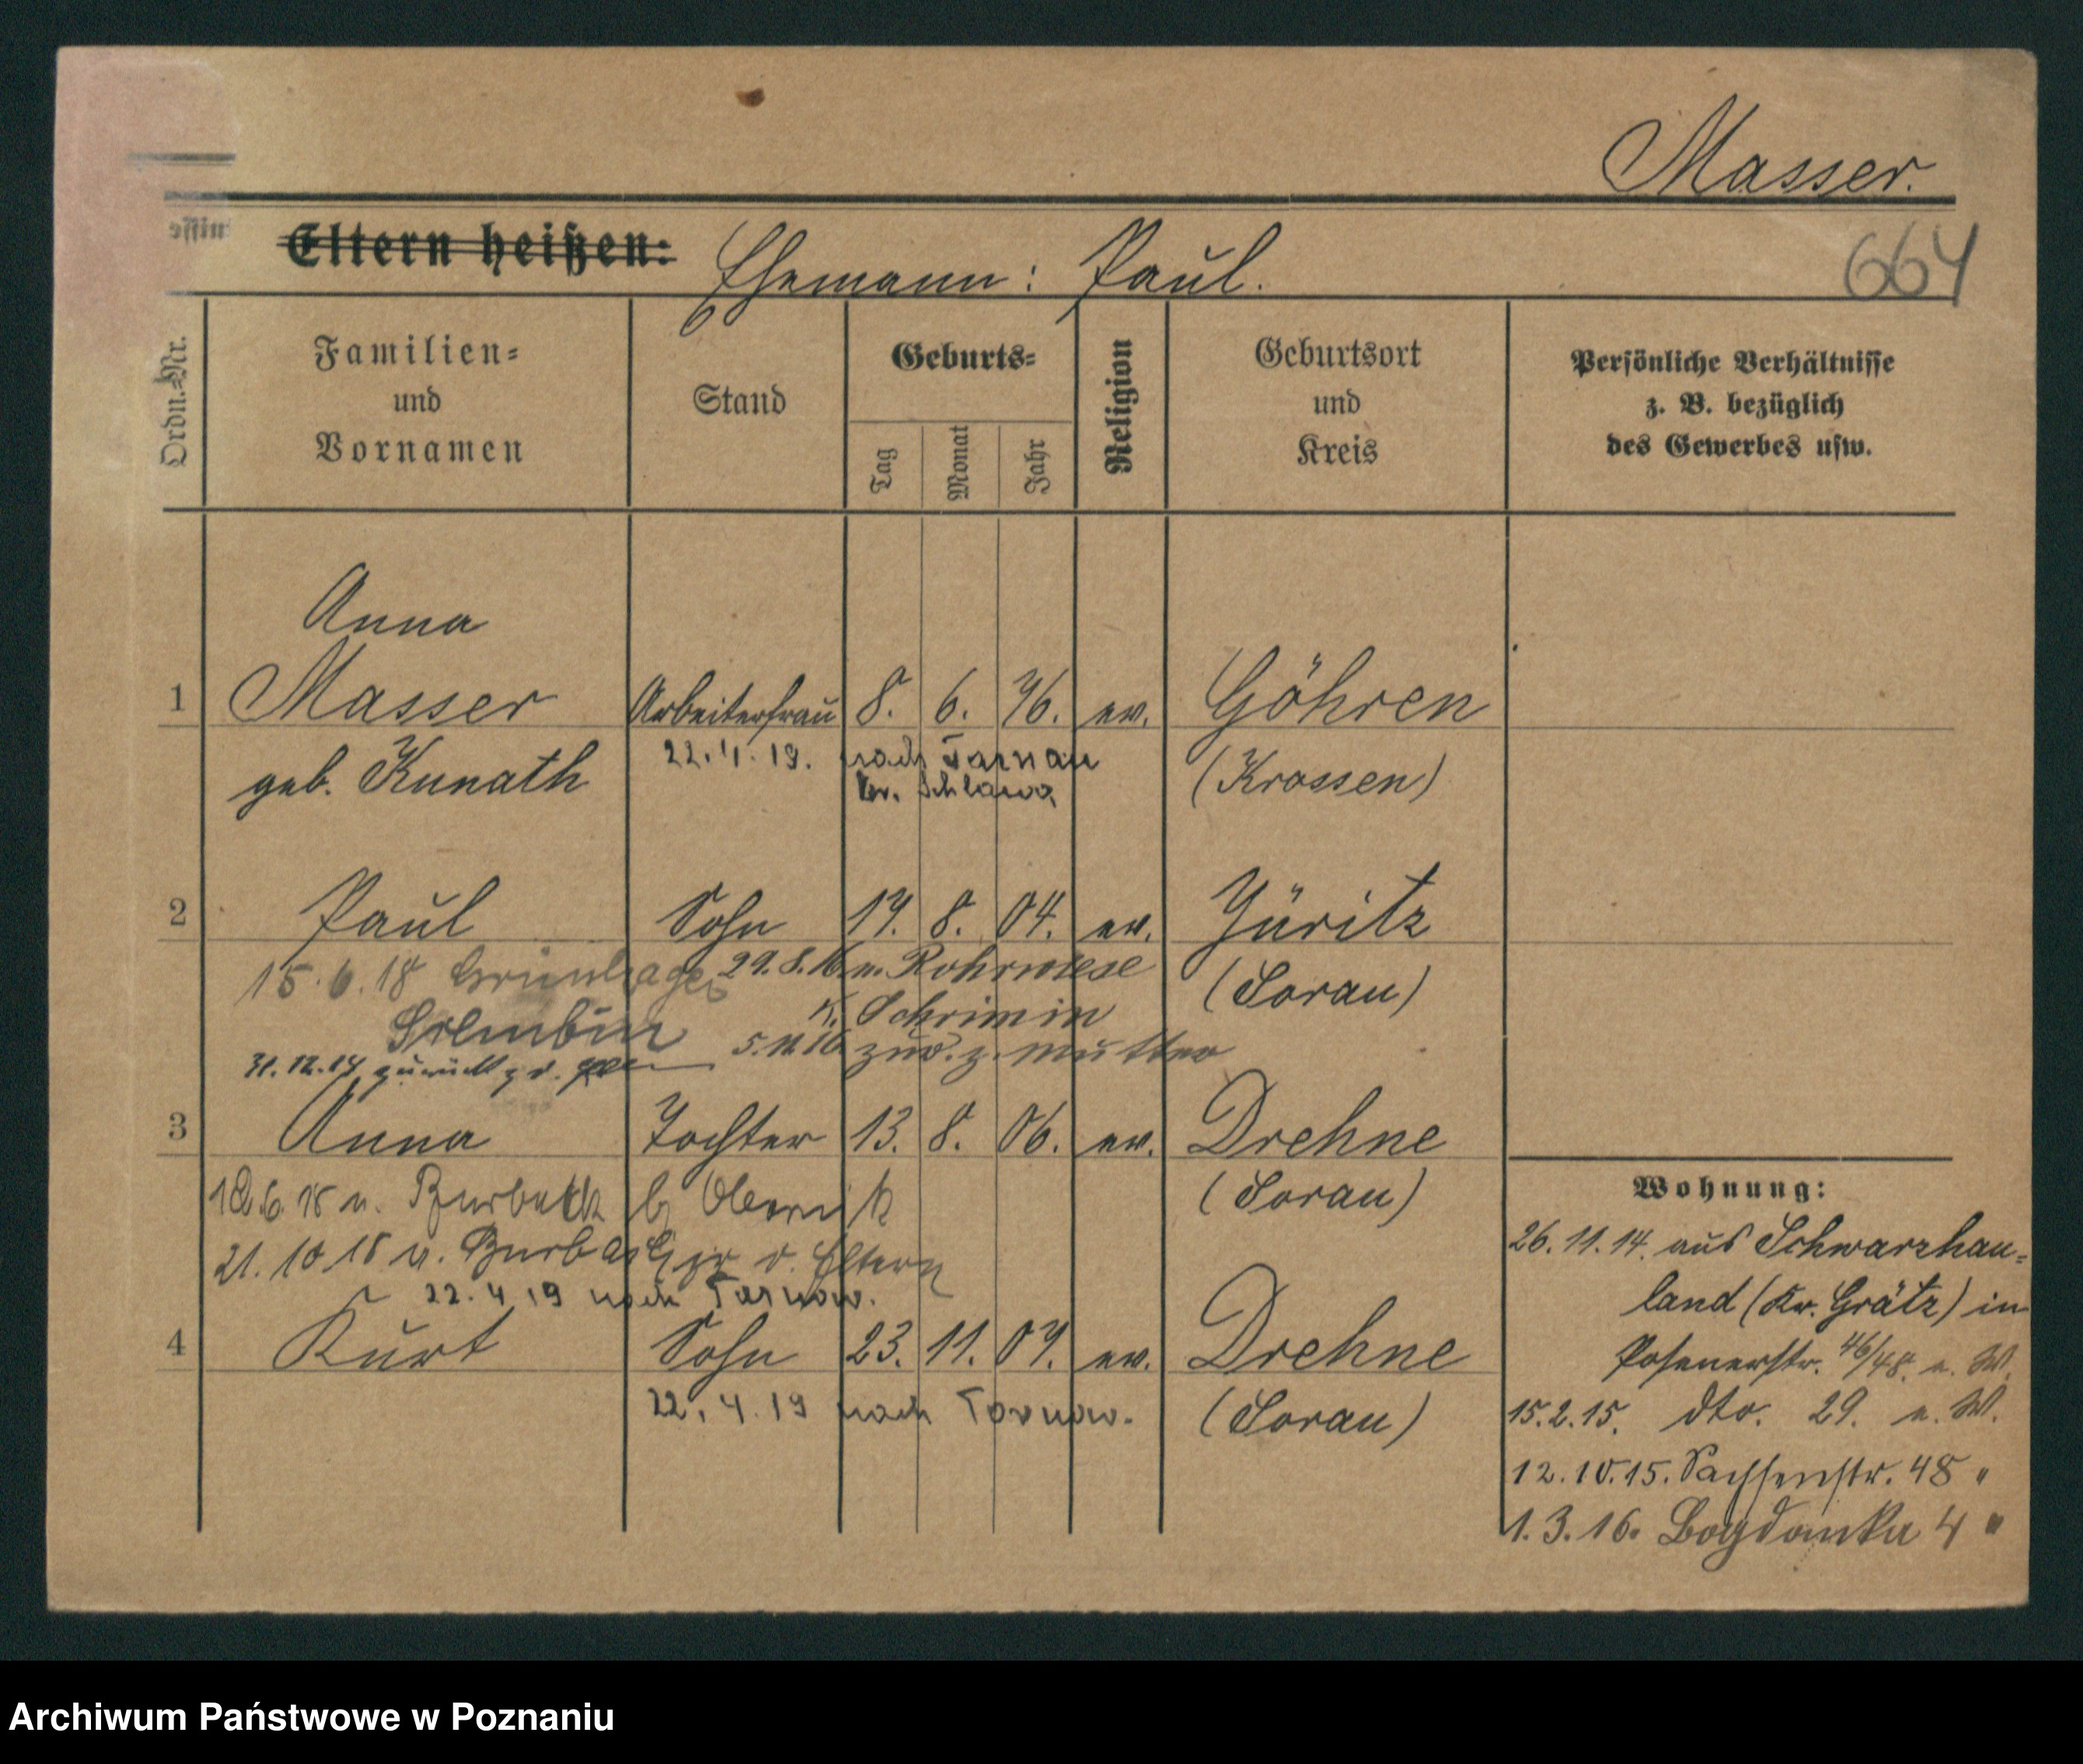 Masser.
Eltern heißen: Ehemann: Paul.
664
Ordn.-Nr.
Familien-
und
Vornamen
Stand
Geburts-
Tag
Monat
Jahr
Religion
Geburtsort
und
Kreis
Persönliche Verhältnisse
z. B. bezüglich
des Gewerbes usw.
Anna
1 Masser Arbeiterfrau 8. 6. 76. ev. Göhren
22.4.19. nach Tarnau
geb. Kunath (Krossen)
kr. Schlawa
2 Paul Sohn 17. 8. 04. ev. Jüritz
15.6.18 29.8.16 n. Rohrwiese
(Sorau)
K. Schrimm
5.11.16 zur. z. Mutter
31.12.17 zurück z. d.
3 Anna Tochter 13. 8. 06. ev. Drehne
18.6.18 n. b. Obornik (Sorau)
21.10 18 v. zr d. Eltern
22.4 19 nach Tarnow.
4 Kurt Sohn 23. 11. 07. ev. Drehne
22.4.19 nach Tarnow. (Sorau)
Wohnung:
26.11.14. aus Schwarzhau-
land (Kr. Grätz) in
Posenerstr. 46/48. n. W.
15.2.15. dto. 29. n. W.
12.10.15. Sachsenstr. 48 "
1.3.16. Bogdanka 4 "
Archiwum Państwowe w Poznaniu